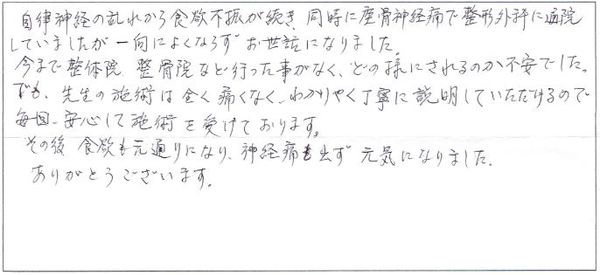 自律神経の乱れから食欲不振が続き 同時に座骨神経痛で整形外科に通院
していましたが一向によくならず お世話になりました。
今まで整体院 整骨院など行った事がなく、どの様にされるのか不安でした。
でも、先生の施術は全く痛くなく、わかりやく丁寧に説明していただけるので
毎回、安心して施術を受けております。
その後 食欲も元通りになり、神経痛も出ず 元気になりました。
ありがとうございます。